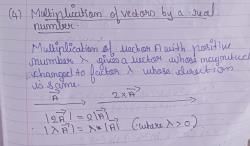 (4) Multiplication of vectors by a real
number.
Multiplication of vector A with positive
number λ gives a vector whose magnitude
changed to factor λ whose direction
is same.
A⃗ 2×A⃗
|2A⃗| = 2|A⃗|
|λA⃗| = λ×|A⃗| (where λ>0)